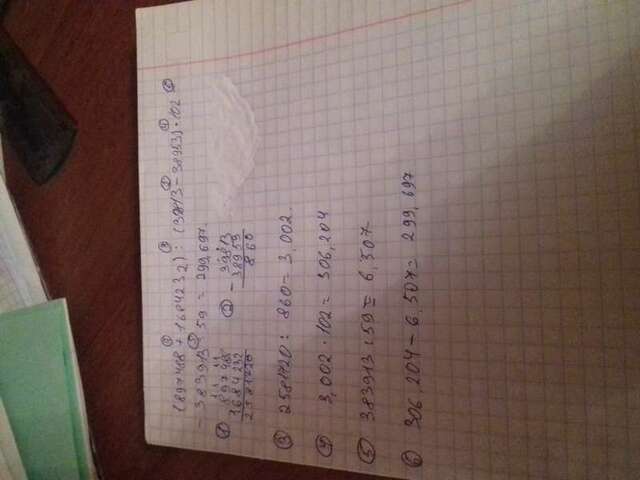 (897488 + 1684232) : (39813 - 38953) · 102
- 383913 : 59 = 299,697.
① 897488 ② - 39813
1684232 38953
2581720 860
③ 2581720 : 860 = 3,002.
④ 3,002 · 102 = 306,204
⑤ 383913 : 59 = 6,507
⑥ 306,204 - 6,507 = 299,697